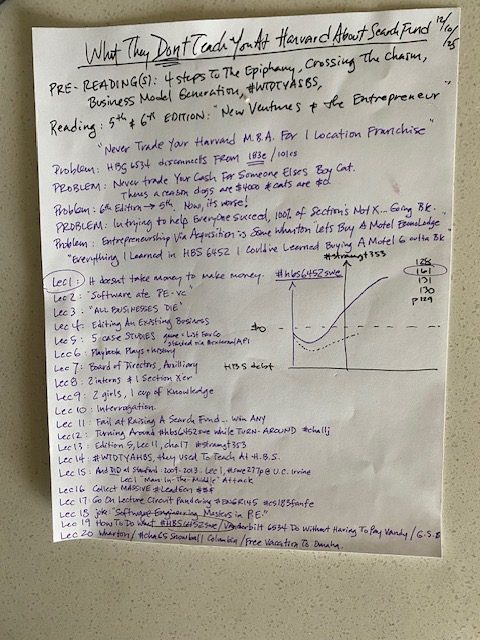 What They Dont Teach You At Harvard About Search Fund 12/10/25
PRE-READING(S): 4 steps To The Epiphany, Crossing The Chasm,
Business Model Generation, #WTDTYASBS,
Reading: 5th & 6th EDITION: "New Ventures & the Entrepreneur"
"Never Trade Your Harvard M.B.A. For 1 Location Franchise"
Problem: HBS 6534 disconnects From 183e/10105
PROBLEM: Never trade Your Cash For Someone Elses Boy Cat.
Theres a reason dogs are $4000 & cats are $0.
Problem: 6th Edition → 5th. Now, its worse!
PROBLEM: In trying to help Everyone Succeed, 100% of Section's Not X... Going Bk.
Problem: Entrepreneurship Via Acquisition is Some Wharton Lets Buy A Motel
"Everything I Learned in HBS 6452 I Could've Learned Buying A Motel 6 outta Bk"
#stramgt353
Lec 1: It doesnt take money to make money. #hbs6452swe
128
161
131
130
p129
Lec 2: "Software ate PE-vc"
Lec 3: "ALL BUSINESSES DIE"
Lec 4: Editing An Existing Business
$0
Lec 5: 5 CASE STUDIES
Lec 6: Playbook Plays + History
Lec 7: Board of Directors, Ancilliary
HBS debt
Lec 8: 2 interns & 1 Section Xer
Lec 9: 2 girls, 1 cup of Knowledge
Lec 10: Interrogation.
Lec 11: Fail at Raising A Search Fund... Win ANY
Lec 12: Turning Around #hbs6452swe while TURN-AROUND #challj
Lec 13: Edition 5, Lec 11, cha 17 #stramgt353
Lec 14: #WTDTYAHBS, they used To Teach At H.B.S.
Lec 15: And DID at Stanford 2009-2013. Lec 1, #swe277p @ U.C. Irvine
Lec 1 "Man-In-The-Middle" Attack
Lec 16 Collect MASSIVE #LeadGen $$$
Lec 17 Go On Lecture Circuit Pandering #ENGR145 #cs183fanfe
Lec 18 joke "Software Engineering Masters in P.E."
Lec 19 How To Do What #HBS6452swe/Vanderbilt 6534 Do Without Having To Pay Vandy/G.S.B
Lec 20 Wharton/#cha65 Snowball Columbia/Free Vacation To Omaha.